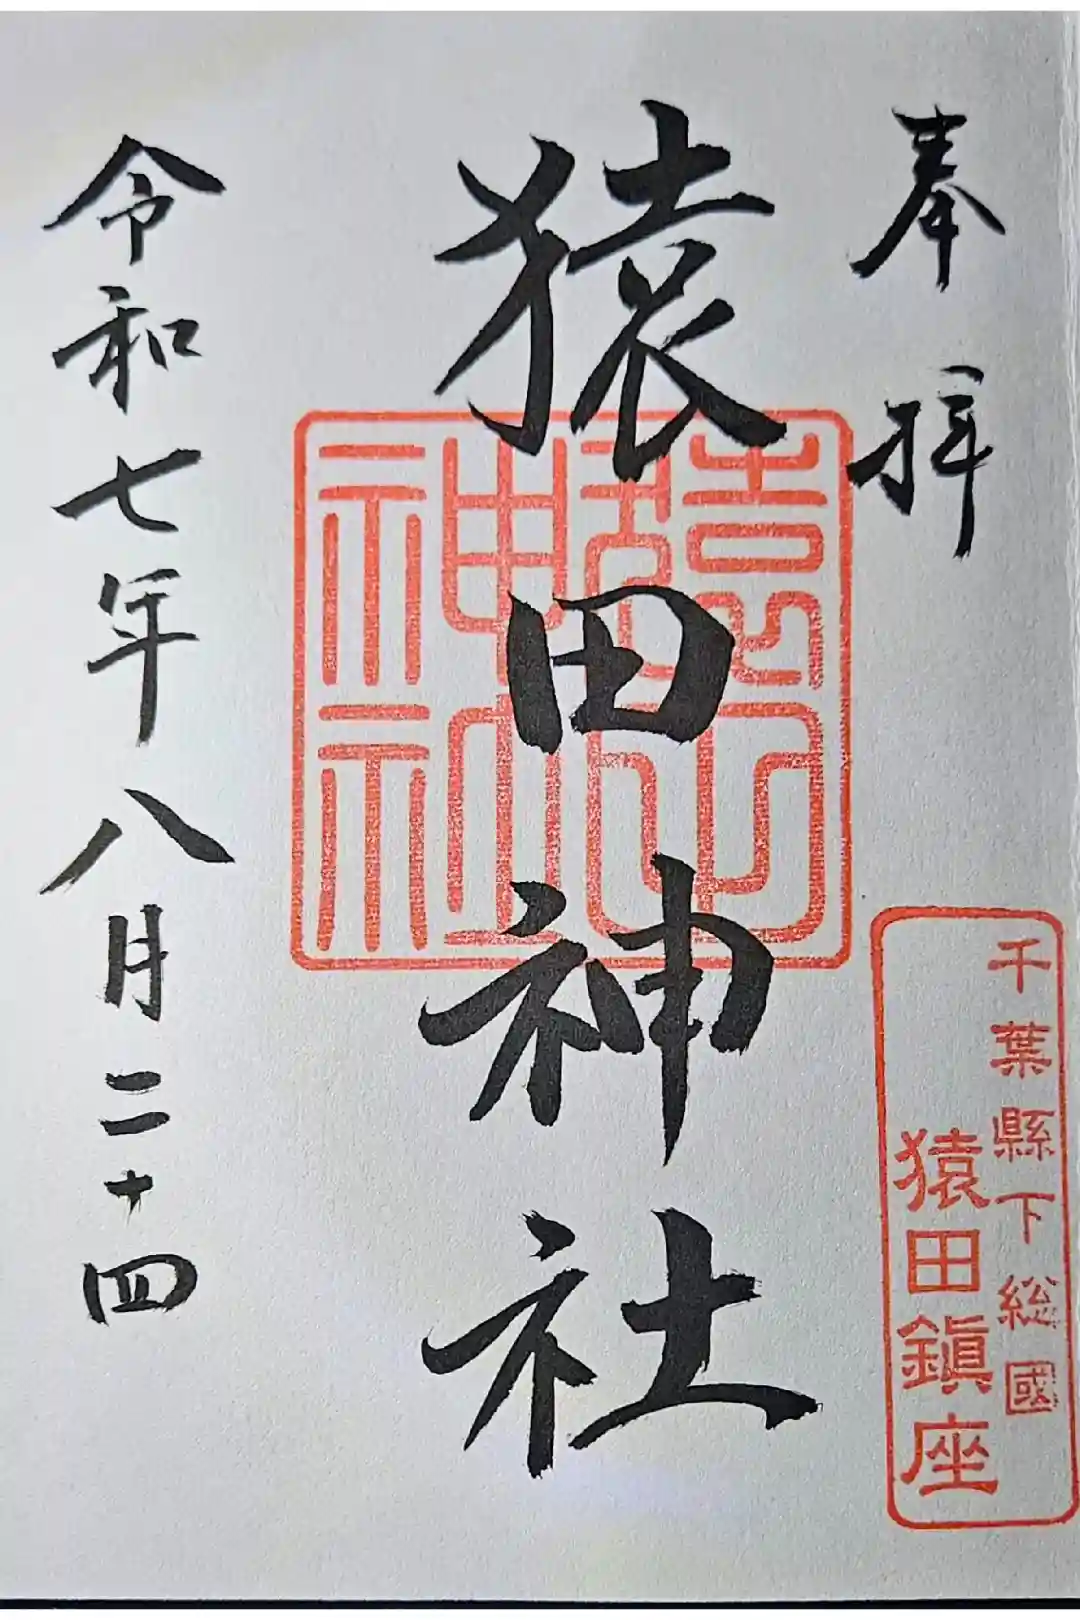 奉拝
千葉縣下総國
猿田鎭座
猿田神社
猿田神社
令和七年八月二十四